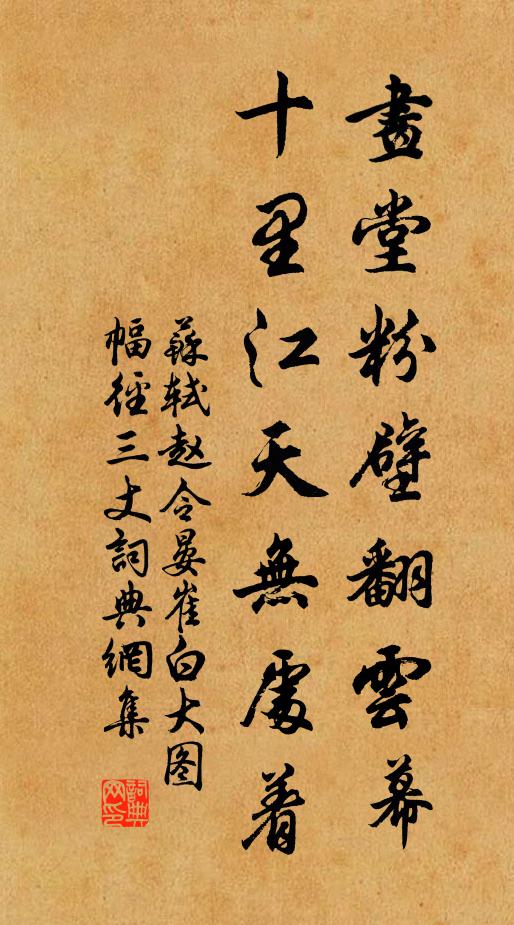 畫堂粉壁翻雲幕
十里江天無處着
蘇軾赵令晏崔白大图
幅徑三丈詞典網集
詞典网印